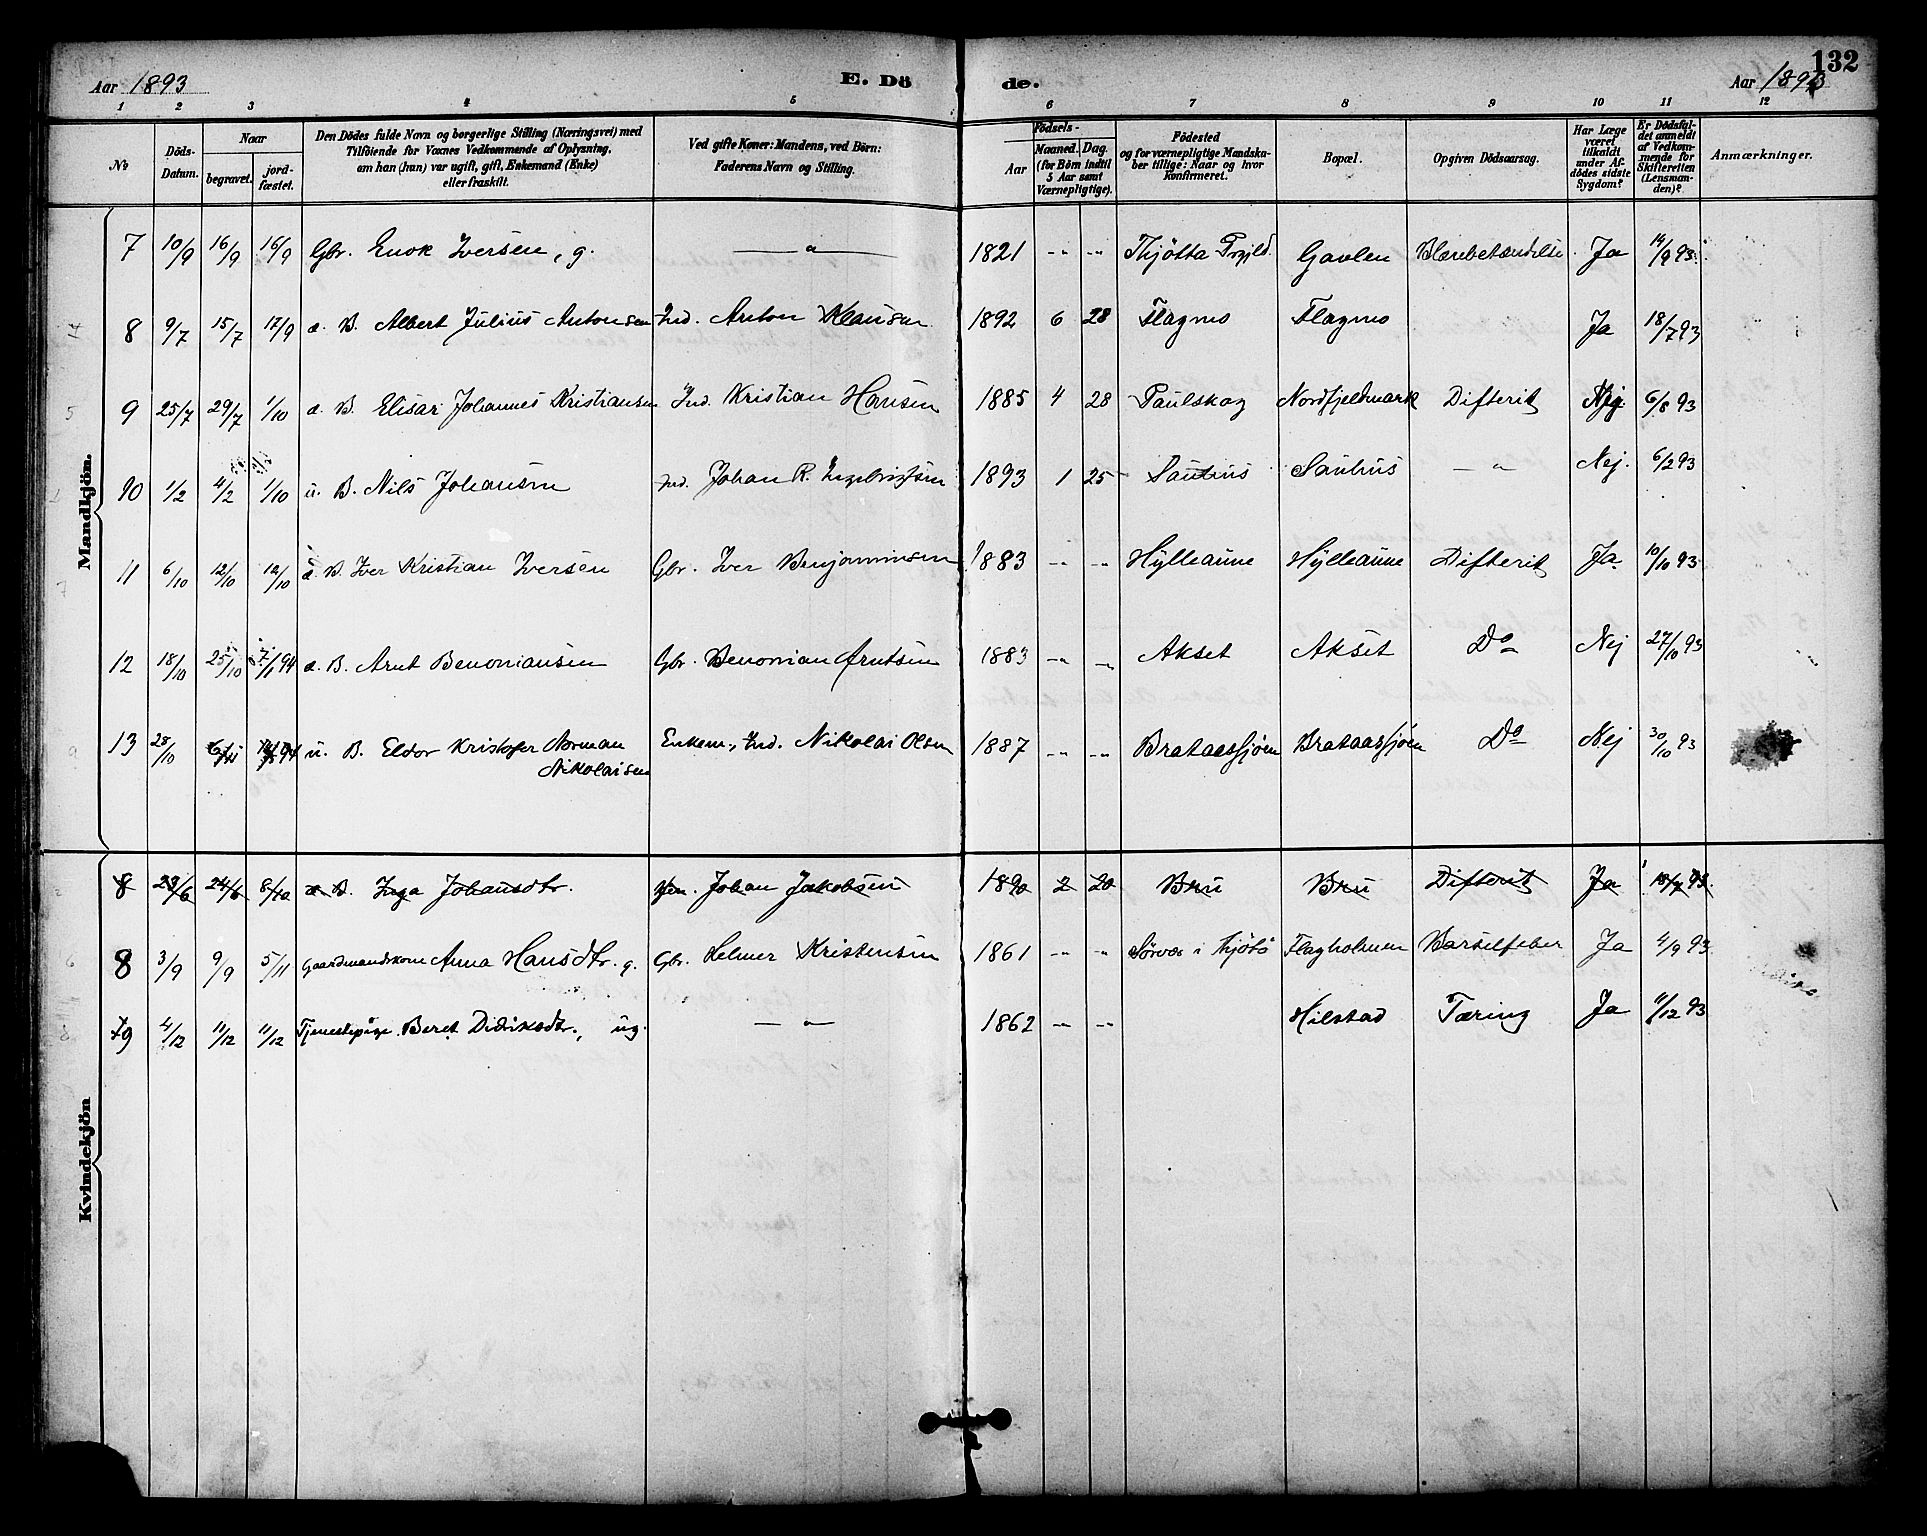 132
Aar 1893
E. Dö
de.
Aar 1893
1 2 3 4 5 6 7 8 9 10 11 12
No
Döds-
Datum.
Naar
begravet.
jord-
fæstet.
Den Dödes fulde Navn og borgerlige Stilling (Næringsvei) med
Tilföiende for Voxnes Vedkommende af Oplysning,
om han (hun) var ugift, gift, Enkemand (Enke)
eller fraskilt.
Ved gifte Koner: Mandens, ved Börn:
Faderens Navn og Stilling.
Födsels-
Aar
Maaned. Dag.
(for Börn indtil
5 Aar samt
Værnepligtige).
Födested
og for værnepligtige Mandska-
ber tillige: Naar og hvor
Konfirmeret.
Bopæl.
Opgiven Dödsaarsag.
Har Læge
været
tilkaldt
under Af-
dödes sidste
Sygdom?
Er Dödsfal-
det anmeldt
af Vedkom-
mende for
Skifteretten
(Lensman-
den)?
Anmærkninger.
Mandkjön.
7 10/9 16/9 16/9 Gbr. Enok Iversen, g. — " — 1821 -"- -"- Thjøtta Prgjld. Gavlen Blærebetændelse Ja 14/9 93
8 9/7 15/7 17/9 æ. B. Albert Julius Antonsen Ind. Anton Klausen 1892 6 28 Flagmo Flagmo Ja 18/7 93
9 25/7 29/7 1/10 æ. B. Elisar Johannes Kristiansen Ind. Kristian Hansen 1885 4 28 Paulskog Nordfjeldmark Difterit Nej 6/8 93
10 1/2 4/2 1/10 u. B. Nils Johansen Ind. Johan R. Ingebrigtsen 1893 1 25 Sauhus Sauhus — " Nej. 6/2 93
11 6/10 12/10 12/10 æ. B. Iver Kristian Iversen Gbr. Iver Benjaminsen 1883 -"- -"- Hylleaune Hylleaune Difterit Ja 10/10 93
12 18/10 25/10 7/1 94 æ. B. Arnt Benoniansen Gbr. Benonian Arntsen 1883 -"- -"- Akset Akset Do Nej 27/10 93
13 28/10 6/11 94 u. B. Eldor Kristofer Norman
Nikolaisen
Enkem., Ind. Nikolai Olsen 1887 -"- -"- Brataassjøen Brataassjøen Do Nej 30/10 93
Kvindekjön
8 23/6 24/6 8/10 æ B. Inga Johansdtr. Johan Jakobsen 1890 2 20 Bru Bru Difterit Ja 93
8 3/9 9/9 5/11 Gaardmandskone Anna Hansdtr. g. Gbr. Helmer Kristensen 1861 -"- -"- Sørvær i Flagholmen Barselfeber Ja 4/9 93
9 4/12 11/12 11/12 Tjenestepige Beret Didriksdtr., ug. — " — 1862 -"- -"- Hilstad Tæring Ja 11/12 93